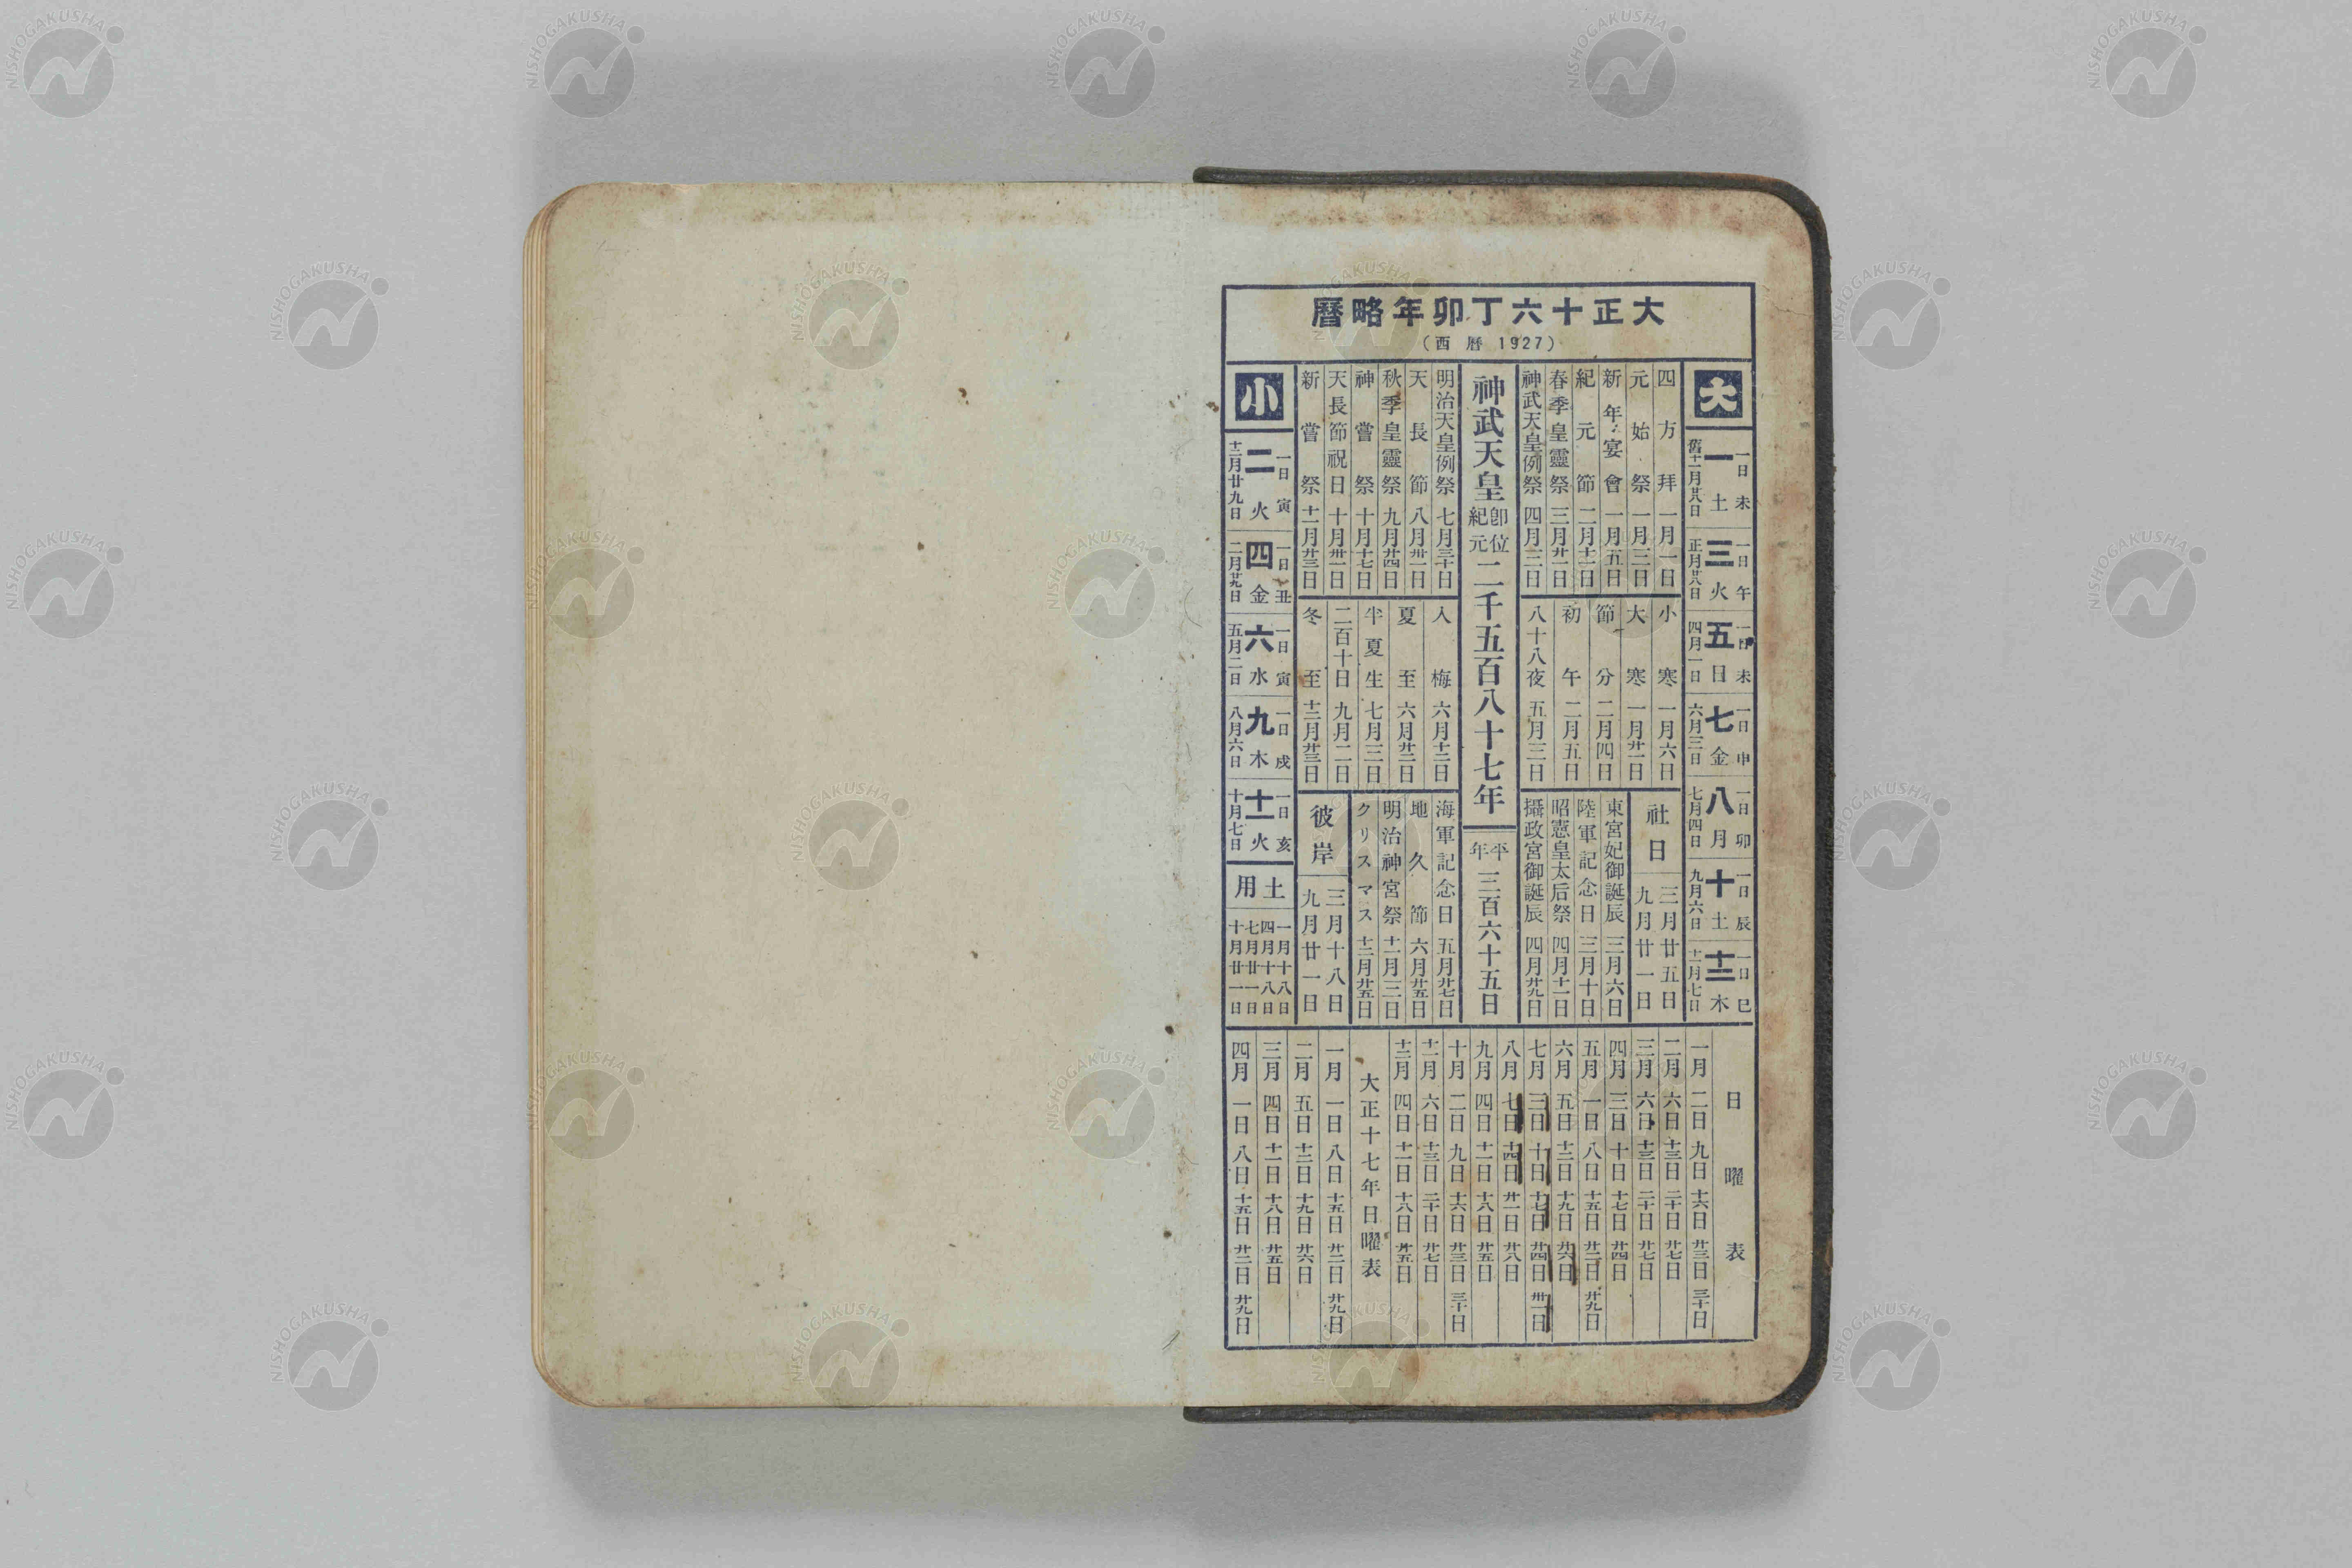 大正十六丁卯年略曆
(西曆 1927)
大
一日未 一土 舊十一月廿八日
一日午 三火 正月廿八日
一日未 五日 四月一日
一日申 七金 六月三日
一日卯 八月 七月四日
一日辰 十土 九月六日
一日巳 十二木 十一月七日
四方拜 一月一日
元始祭 一月三日
新年宴會 一月五日
紀元節 二月十一日
春季皇靈祭 三月廿一日
神武天皇例祭 四月三日
小寒 一月六日
大寒 一月廿一日
節分 二月四日
初午 二月五日
八十八夜 五月三日
社日 三月廿五日 九月廿一日
東宮妃御誕辰 三月六日
陸軍記念日 三月十日
昭憲皇太后祭 四月十一日
攝政宮御誕辰 四月廿九日
神武天皇卽位紀元二千五百八十七年
平年 三百六十五日
明治天皇例祭 七月三十日
天長節 八月卅一日
秋季皇靈祭 九月廿四日
神嘗祭 十月十七日
天長節祝日 十月卅一日
新嘗祭 十一月廿三日
入梅 六月十二日
夏至 六月廿二日
半夏生 七月三日
二百十日 九月二日
冬至 十二月廿三日
海軍記念日 五月廿七日
地久節 六月廿五日
明治神宮祭 十一月三日
クリスマス 十二月廿五日
彼岸 三月十八日 九月廿一日
小
一日寅 二火 十二月廿九日
一日丑 四金 二月廿九日
一日寅 六水 五月二日
一日戌 九木 八月六日
一日亥 十一火 十月七日
土用
一月十八日
四月十八日
七月廿一日
十月廿一日
日曜表
一月 二日 九日 十六日 廿三日 三十日
二月 六日 十三日 二十日 廿七日
三月 六日 十三日 二十日 廿七日
四月 三日 十日 十七日 廿四日
五月 一日 八日 十五日 廿二日 廿九日
六月 五日 十二日 十九日 廿六日
七月 三日 十日 十七日 廿四日 卅一日
八月 七日 十四日 廿一日 廿八日
九月 四日 十一日 十八日 廿五日
十月 二日 九日 十六日 廿三日 三十日
十一月 六日 十三日 二十日 廿七日
十二月 四日 十一日 十八日 廿五日
大正十七年日曜表
一月 一日 八日 十五日 廿二日 廿九日
二月 五日 十二日 十九日 廿六日
三月 四日 十一日 十八日 廿五日
四月 一日 八日 十五日 廿二日 廿九日
NISHOGAKUSHA